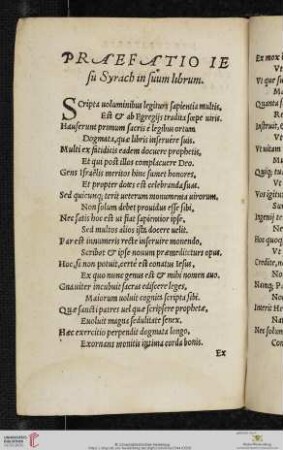 PRAEFATIO IE
su Syrach in suum librum.
Scripta uoluminibus legitur sapientia multis,
Est & ab Egregijs tradita sæpe uiris.
Hauserunt primum sacris è legibus ortam
Dogmata, quæ libris inseruêre suis.
Multi ex fatidicis eadem docuere prophetis,
Et qui post illos complacuere Deo.
Gens Israëlis meritos hinc sumet honores,
Et propter dotes est celebranda suas.
Sed quicunq; terit ueterum monumenta uirorum,
Non solum debet prouidus esse sibi,
Nec satis hoc est ut fiat sapientior ipse,
Sed multos alios ista docere uelit.
Par est innumeris recte inseruire monendo,
Scribat & ipse nouum præmeditetur opus.
Hoc, si non potuit, certè est conatus Iesus,
Ex quo nunc genus est & mihi nomen auo.
Gnauiter incubuit sacras ediscere leges,
Maiorum uoluit cognita scripta sibi.
Quæ sancti patres uel quæ scripsere prophetæ,
Euoluit magna sedulitate senex.
Hæc exercitio perpendit dogmata longo,
Exornans monitis intima corda bonis.
Ex
Ex mox
Vt
Vt que su
Ma
Quanta s
Re
Instruit,
Vt
Quip; tu
Vt
Vos igitu
Ne
Hoc quoq
V
Credite, n
No
Nang; Pa
No
Interit He
Na
Nec solum
Con